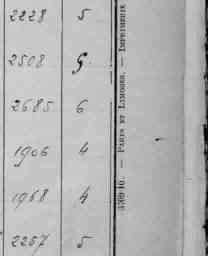 2228 5
2508 5
2685 6
1906 4
1968 4
2267 5
PARIS ET LIMOGES. — IMPRIMERIE